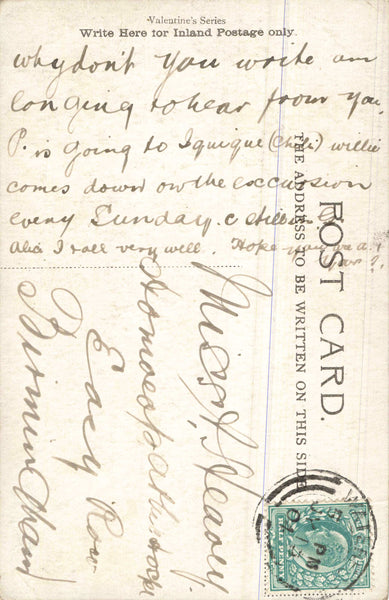 Valentine's Series
Write Here for Inland Postage only.
why don't you write am
longing to hear from you,
P. is going to Iquique (Chili) willie
comes down on the excursion
every Sunday.
I all very well. Hope you
POST CARD.
THE ADDRESS TO BE WRITTEN ON THIS SIDE
Miss H. Heavey
Homoeopathic
Easy Row
Birmingham
PM
HALF PENNY